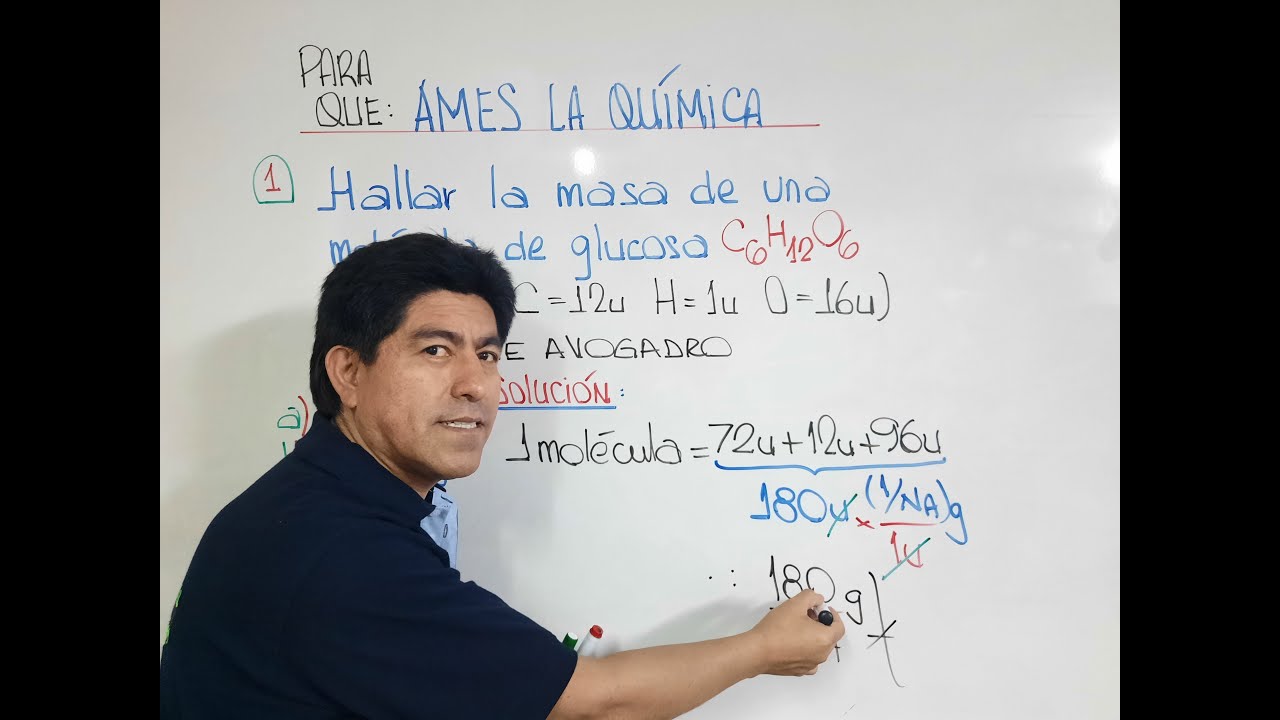 PARA
QUE: AMES LA QUÍMICA
1 Hallar la masa de una
de glucosa C6H12O6
C = 12u H = 1u O = 16u)
AVOGADRO
a)
1 molécula = 72u + 12u + 96u
180u × (1/NA)g
1u
∴ 180 g